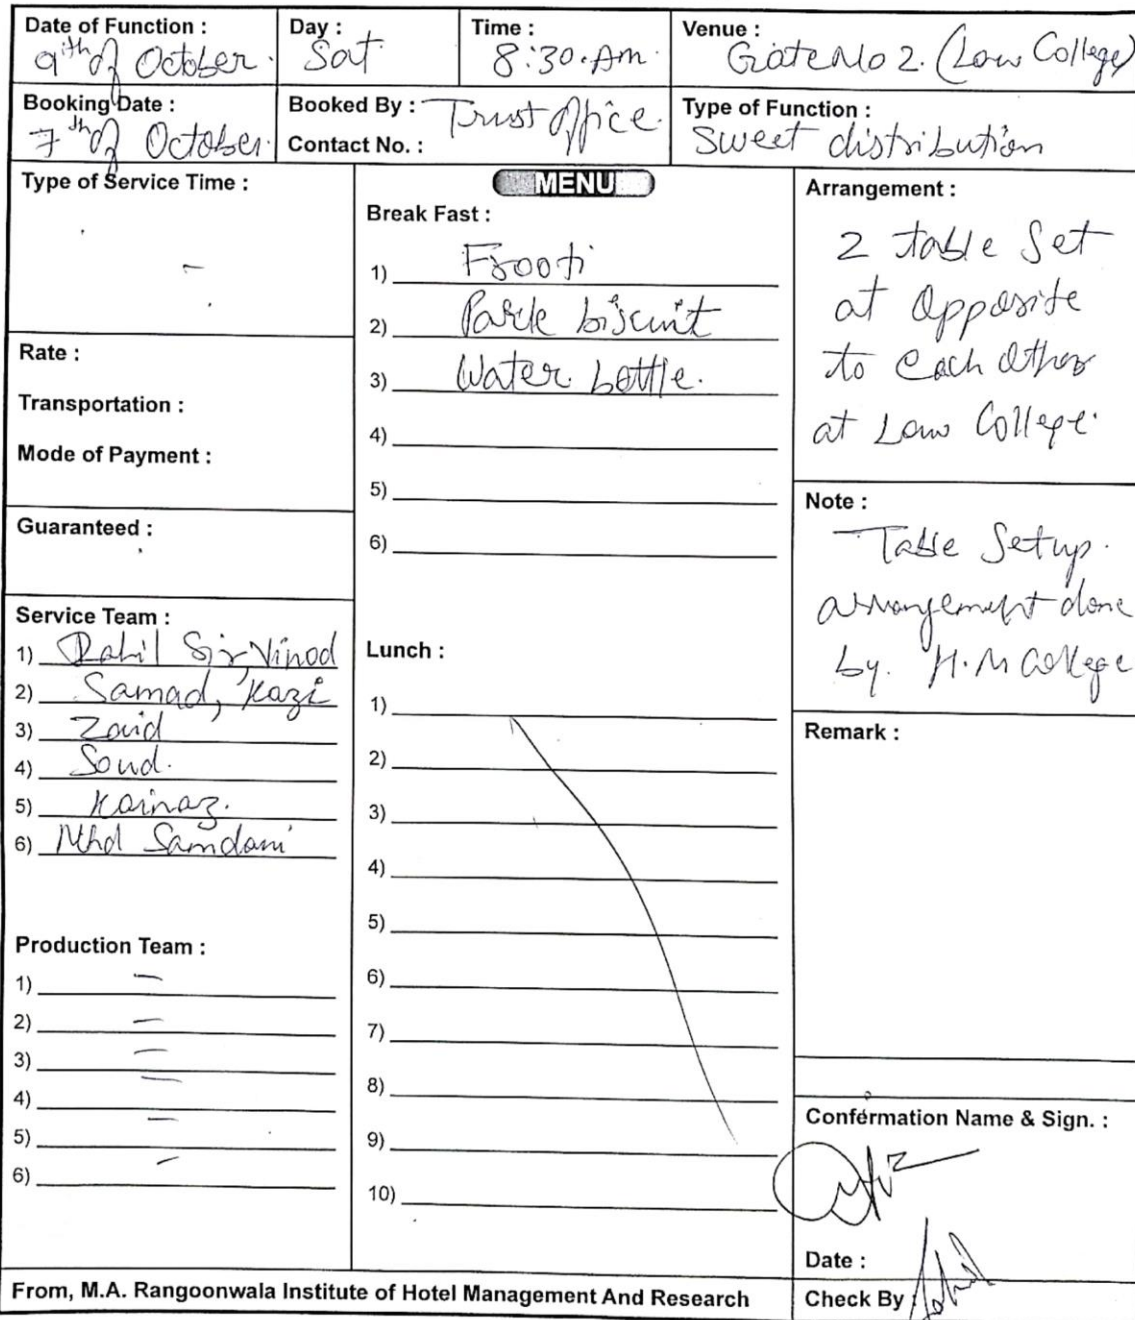 Date of Function :
9th of October.
Day :
Sat
Time :
8:30.Am.
Venue :
Gate No 2. (Law College)
Booking Date :
7th of October.
Booked By : Trust office.
Contact No. :
Type of Function :
Sweet distribution
Type of Service Time :
-
Rate :
Transportation :
Mode of Payment :
Guaranteed :
Service Team :
1) Rahil Sir, Vinod
2) Samad, Kazi
3) Zaid
4) Soud.
5) Kainaz.
6) Mhd Samdani
Production Team :
1) -
2) -
3) -
4) -
5) -
6) -
MENU
Break Fast :
1) Frooti
2) Parle biscuit
3) Water. bottle.
4)
5)
6)
Lunch :
1)
2)
3)
4)
5)
6)
7)
8)
9)
10)
Arrangement :
2 table Set
at Opposite
to each other
at Law College.
Note :
Table Setup.
arrangement done
by. H.M College
Remark :
Confermation Name & Sign. :
Date :
Check By
From, M.A. Rangoonwala Institute of Hotel Management And Research